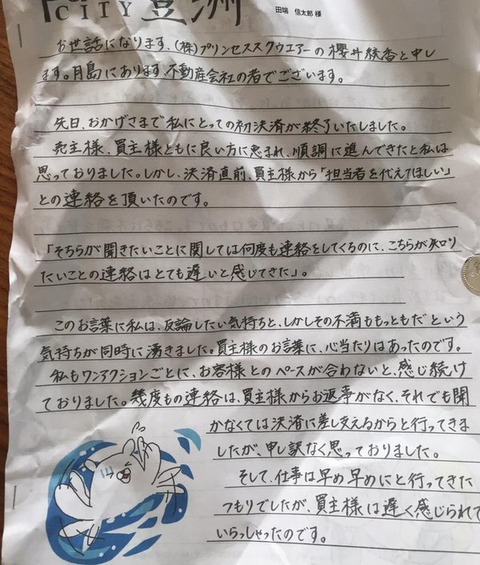 CITY 豊洲
田端 信太郎 様
お世話になります、(株)プリンセススクウエアーの櫻井綾香と申し
ます。月島にあります、不動産会社の者でございます。
先日、おかげさまで私にとっての初決済が終了いたしました。
売主様、買主様ともに良い方に恵まれ、順調に進んできたと私は
思っておりました。しかし、決済直前、買主様から「担当者を代えてほしい」
との連絡を頂いたのです。
「そちらが聞きたいことに関しては何度も連絡をしてくるのに、こちらが知り
たいことの連絡はとても遅いと感じてきた」。
このお言葉に私は、反論したい気持ちと、しかしその不満ももっともだという
気持ちが同時に湧きました。買主様のお言葉に、心当たりはあったのです。
私もワンアクションごとに、お客様とのペースが合わないと、感じ続け
ておりました。幾度もの連絡は、買主様からお返事がなく、それでも聞
かなくては決済に差し支えるからと行ってきま
したが、申し訳なく思っておりました。
そして、仕事は早め早めにと行ってきた
つもりでしたが、買主様は遅く感じられて
いらっしゃったのです。